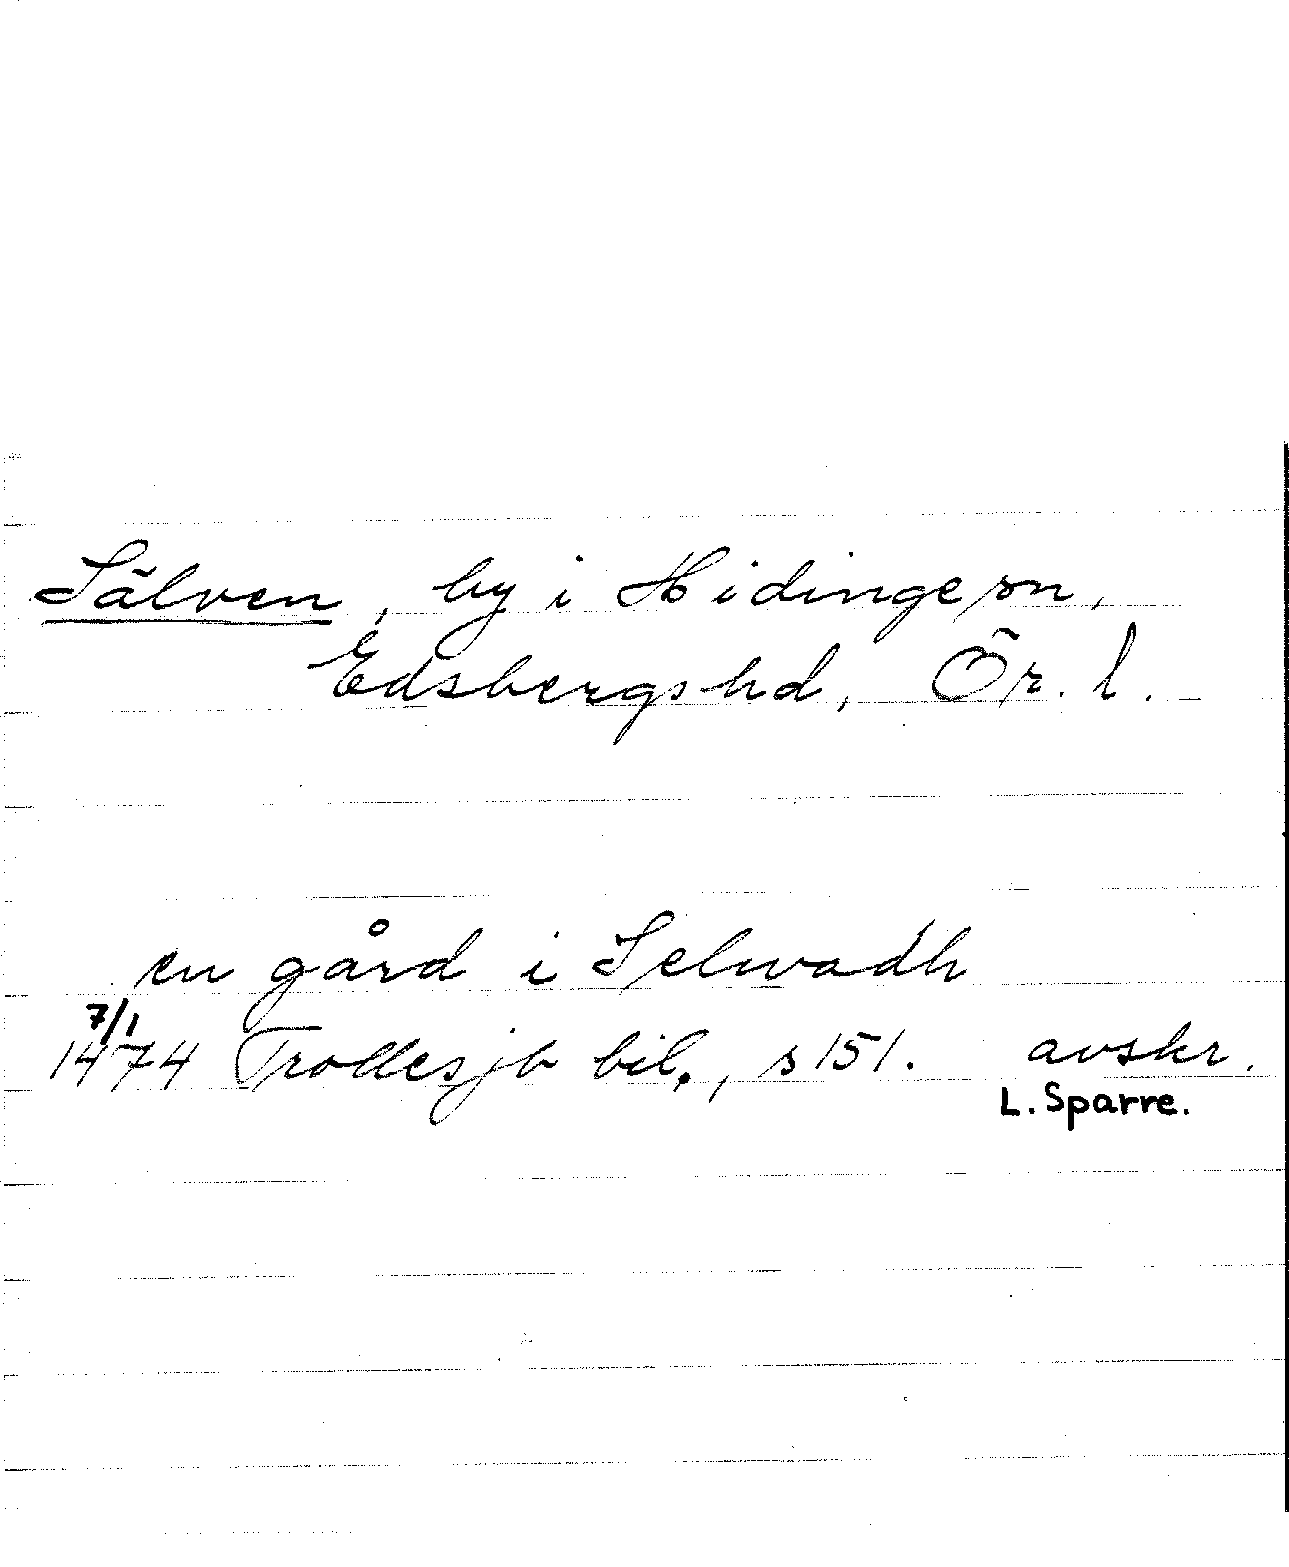 Sälven, by i Hidinge sn,
Edsbergshd, Ör. l.
en gård i Selwadh
7/1
1474 Trolles jb bil., s 151. avskr.
L. Sparre.